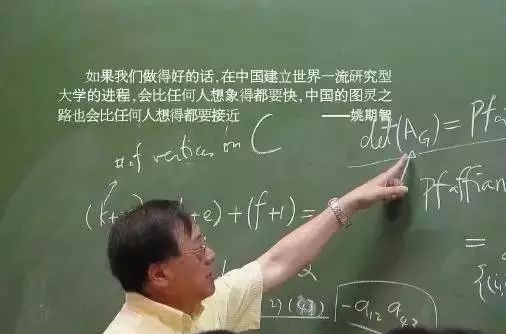 如果我们做得好的话,在中国建立世界一流研究型
大学的进程,会比任何人想象得都要快,中国的图灵之
路也会比任何人想得都要接近 ——姚期智
# of vertices in C
det(A_G) = Pfa
Pfaffian
+e) + (f+1) =
=
2
-a₁₂ a